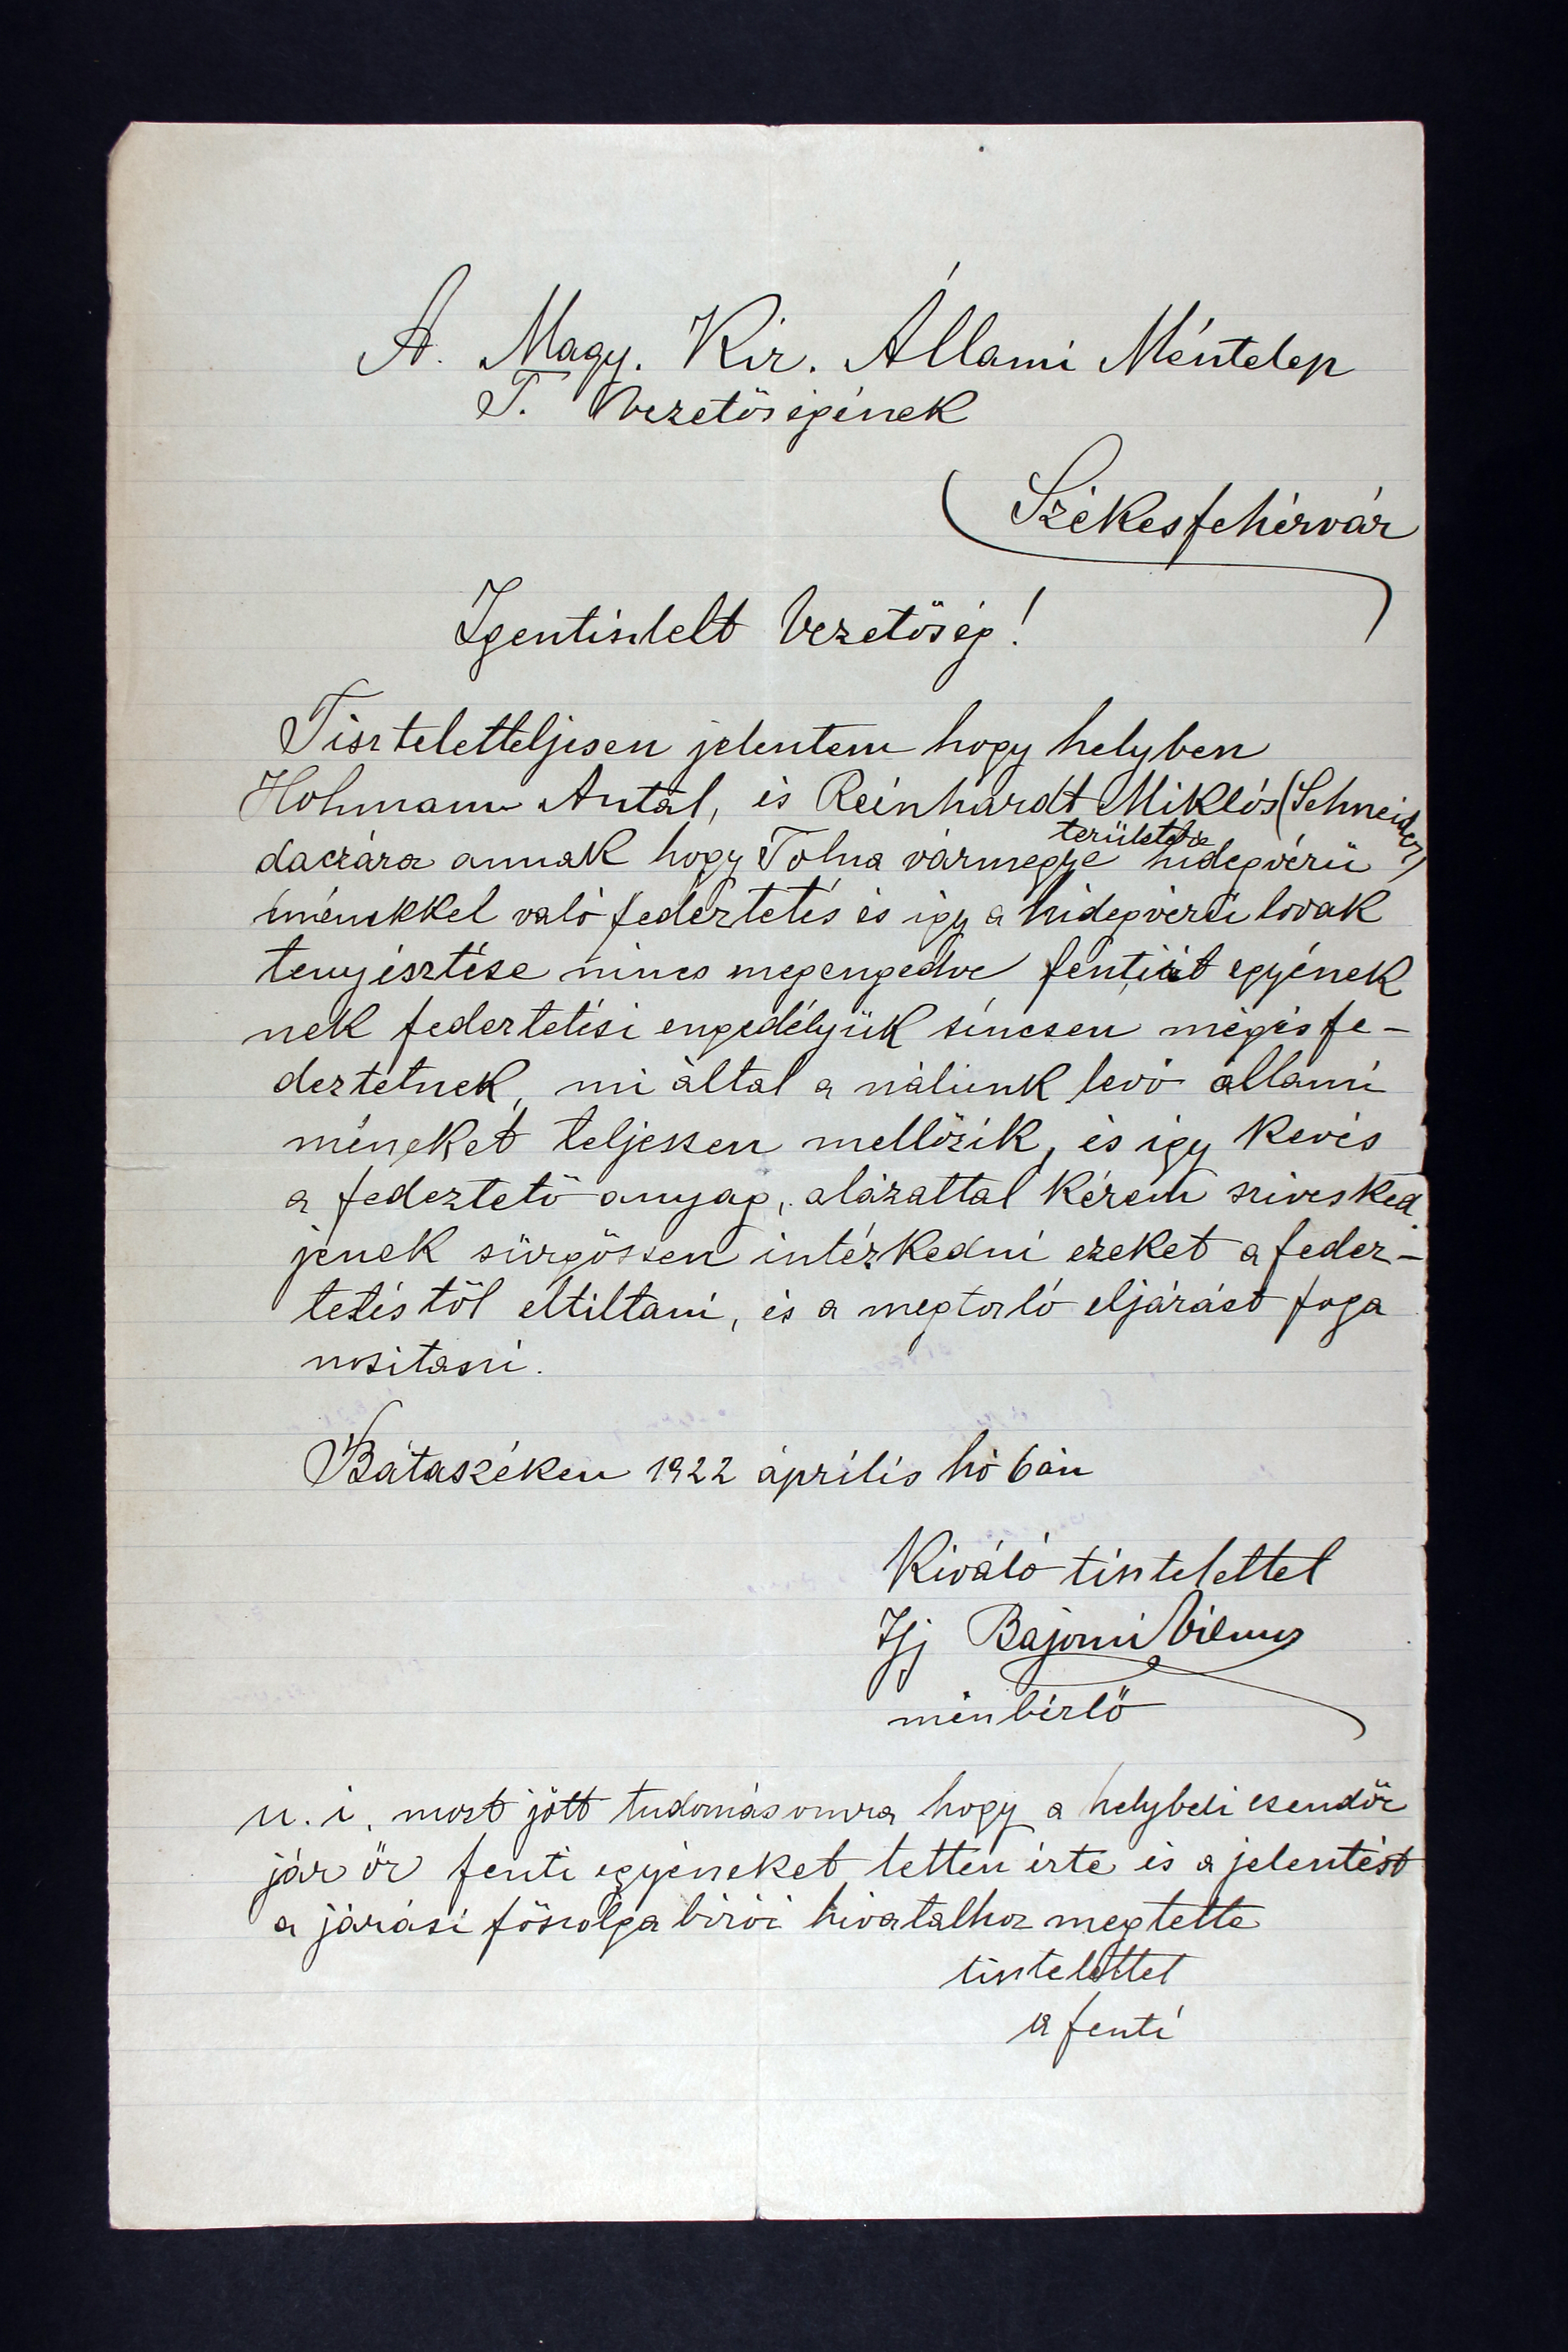 A. Magy. Kir. Állami Méntelep
T. Vezetőségének
Székesfehérvár
Igentisztelt Vezetőség!
Tiszteletteljesen jelentem hogy helyben
Hohmann Antal, és Reinhardt Miklós (Schneider)
daczára annak hogy Tolna vármegye területébe hidegvérü
ménekkel való fedeztetés és így a hidegvérü lovak
tenyésztése nincs megengedve fentirt egyének
nek fedeztetési engedélyük sincsen mégis fe-
deztetnek, mi által a nálunk levő állami
méneket teljessen mellőzik, és így kevés
a fedeztető anyag, alázattal kérem szivesked
jenek sürgőssen intézkedni ezeket a fedez-
tetéstől eltiltani, és a megtorló eljárást foga
nositani.
Bátaszéken 1922 április hó 6án
Kiváló tisztelettel
Ifj Bajomi Vilmos
ménbérlő
u. i. most jött tudomásomra hogy a helybeli csendőr
jár őr fenti egyéneket tetten érte és a jelentést
a járási főszolgabirói hivatalhoz megtette
tisztelettel
a fenti